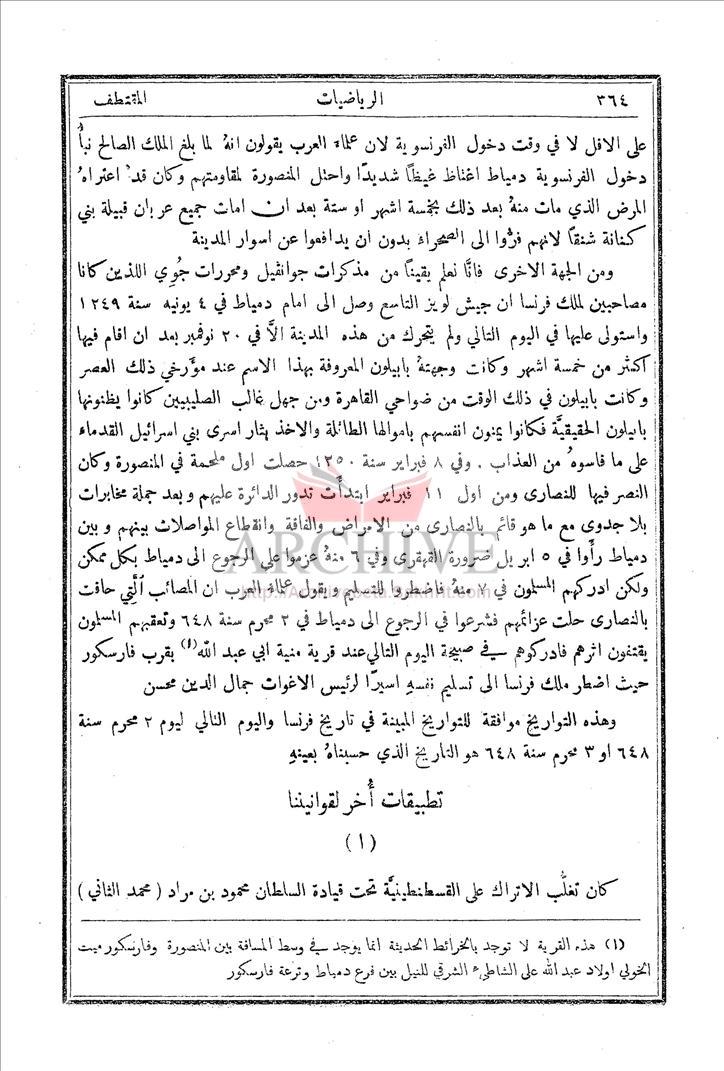 ٣٦٤ الرياضيات المقتطف
على الاقل لا في وقت دخول الفرنسوية لان علماء العرب يقولون انهُ لما بلغ الملك الصالح نبأُ
دخول الفرنسوية دمياط اغتاظ غيظاً شديدًا واحتل المنصورة لمقاومتهم وكان قد اعتراهُ
المرض الذي مات منهُ بعد ذلك بخمسة اشهر او ستة بعد ان امات جميع عربان قبيلة بني
كنانة شنقاً لانهم فرُّوا الى الصحراء بدون ان يدافعوا عن اسوار المدينة
ومن الجهة الاخرى فانَّا نعلم يقيناً من مذكرات جوانڤيل ومحررات جُوي اللذين كانا
مصاحبين لملك فرنسا ان جيش لويز التاسع وصل الى امام دمياط في ٤ يونيه سنة ١٢٤٩
واستولى عليها في اليوم التالي ولم يتحرك من هذه المدينة الاَّ في ٢٠ نوفمبر بعد ان اقام فيها
اكثر من خمسة اشهر وكانت وجهتهُ بابيلون المعروفة بهذا الاسم عند مؤرخي ذلك العصر
وكانت بابيلون في ذلك الوقت من ضواحي القاهرة ومن جهل غالب الصليبيين كانوا يظنونها
بابيلون الحقيقيَّة فكانوا يمنون انفسهم باموالها الطائلة والاخذ بثار اسرى بني اسرائيل القدماء
على ما قاسوهُ من العذاب . وفي ٨ فبراير سنة ١٢٥٠ حصلت اول ملحمة في المنصورة وكان
النصر فيها للنصارى ومن اول ١١ فبراير ابتدأت تدور الدائرة عليهم وبعد جملة مخابرات
بلا جدوى مع ما هو قائم بالنصارى من الامراض والفاقة وانقطاع المواصلات بينهم وبين
دمياط رأوا في ٥ ابريل ضرورة القهقرى وفي ٦ منهُ عزموا على الرجوع الى دمياط بكل ممكن
ولكن ادركهم المسلمون في ٧ منهُ فاضطروا للتسليم ويقول علماء العرب ان المصائب الَّتي حاقت
بالنصارى حلت عزائهم فشرعوا في الرجوع الى دمياط في ٢ محرم سنة ٦٤٨ وتعقبهم المسلمون
يقتفون اثرهم فادركوهم في صبيحة اليوم التالي عند قرية منية ابي عبد الله (١) بقرب فارسكور
حيث اضطر ملك فرنسا الى تسليم نفسهِ اسيرًا لرئيس الاغوات جمال الدين محسن
وهذه التواريخ موافقة للتواريخ المبينة في تاريخ فرنسا واليوم التالي ليوم ٢ محرم سنة
٦٤٨ او ٣ محرم سنة ٦٤٨ هو التاريخ الذي حسبناهُ بعينهِ
تطبيقات أُخر لقوانيننا
(١)
كان تغلُّب الاتراك على القسطنطينيَّة تحت قيادة السلطان محمود بن مراد ( محمد الثاني )
(١) هذه القرية لا توجد بالخرائط الحديثة انما يوجد في وسط المسافة بين المنصورة وفارسكور ميت
الخولي اولاد عبد الله على الشاطىء الشرقي للنيل بين فرع دمياط وترعة فارسكور
ARCHIVE